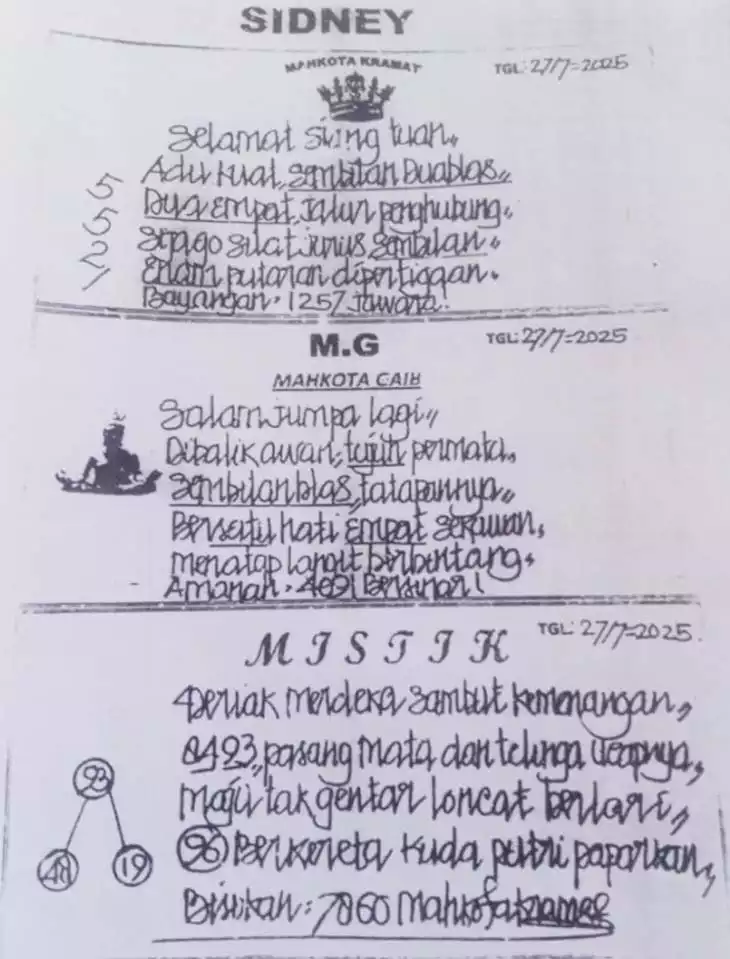 SIDNEY
MAHKOTA KRAMAT
TGL: 27/7=2025
Selamat siang tuan,,
Adu kuat, sembilan Duablas,,
Dua empat, jalur penghubung,
silat jurus sembilan,,
Enam putaran dipertiggan.
Bayangan. 1257 Jawara!
5
5
2
1
M.G
TGL: 27/7=2025
MAHKOTA GAIB
Salam jumpa lagi,,
Dibalik awan, tujuh permata,
Sembilan blas, tatapannya,,
Bersatu hati empat sekawan,
Menatap langit berbintang,
Amanah. 4091 Bersinar!
MISTIK
TGL: 27/7=2025.
Periak Merdeka sambut kemenangan,,
8493,, pasang mata dan telinga ucapnya,
Maju tak gentar loncat berlari,,
96 Berkereta kuda putri paparkan,
Bisikan: 7860 Mahkota
93
48
19